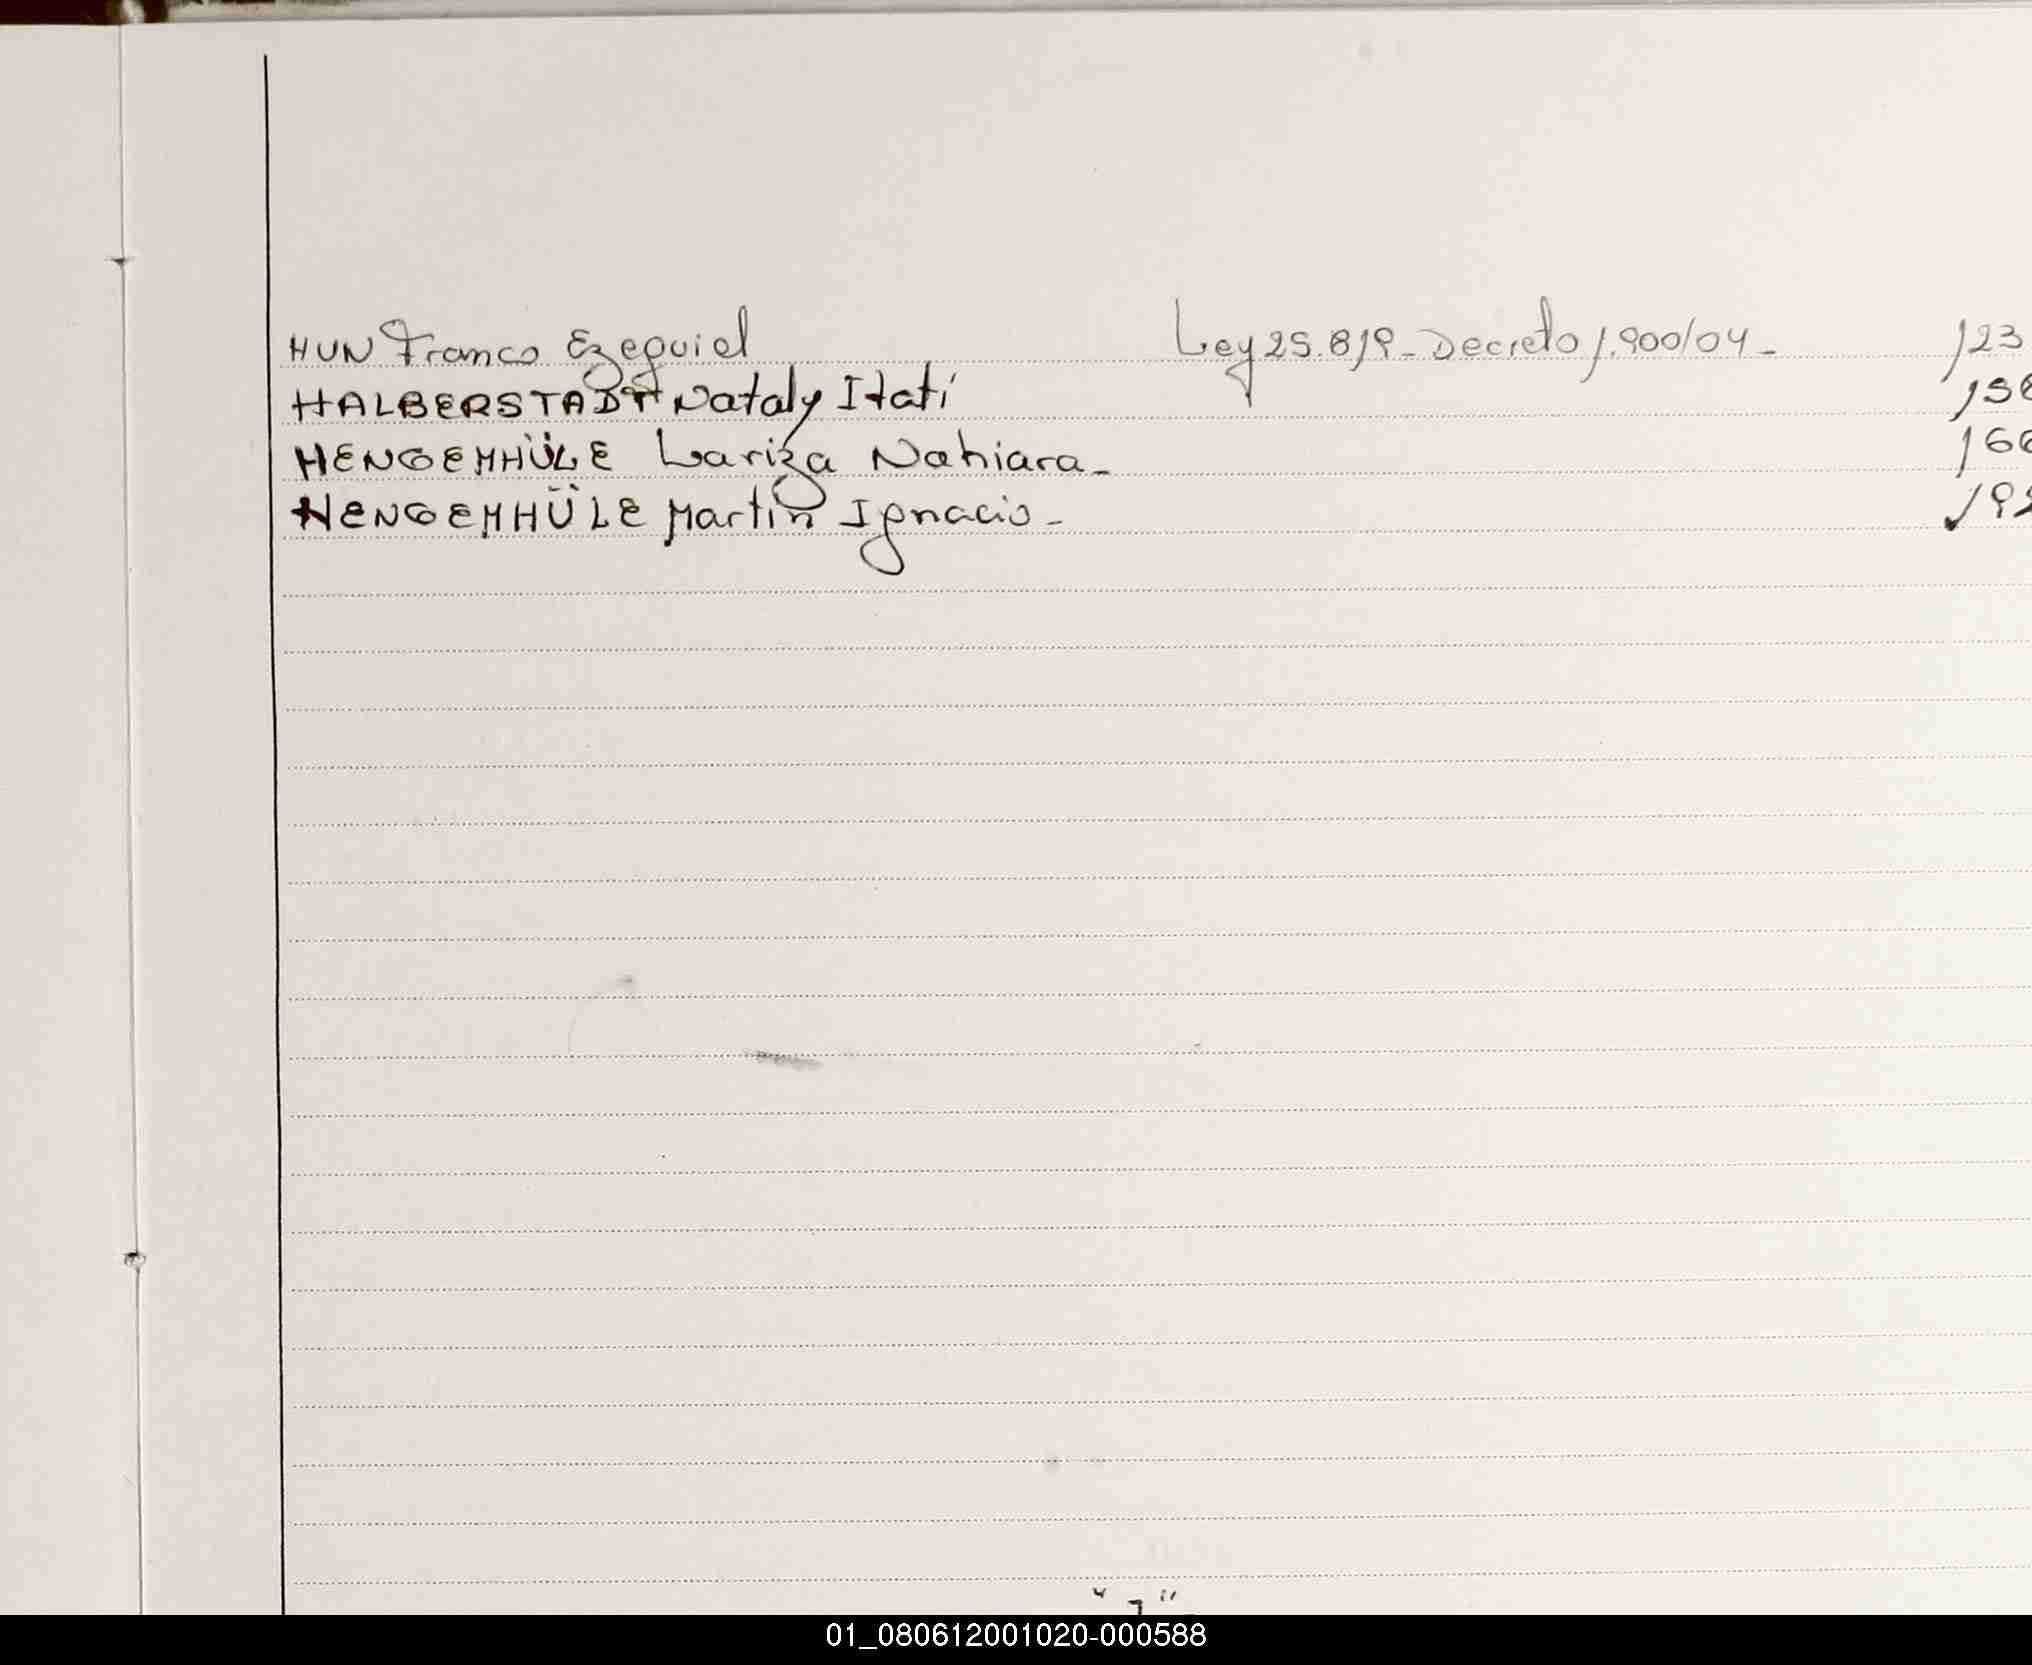 HUN Franco Ezequiel Ley 25.819 - Decreto 1.900/04 - 123
HALBERSTADT Nataly Itatí 15
HENGEMHÜLE Lariza Nahiara - 16
HENGEMHÜLE Martín Ignacio - 19
01_080612001020-000588